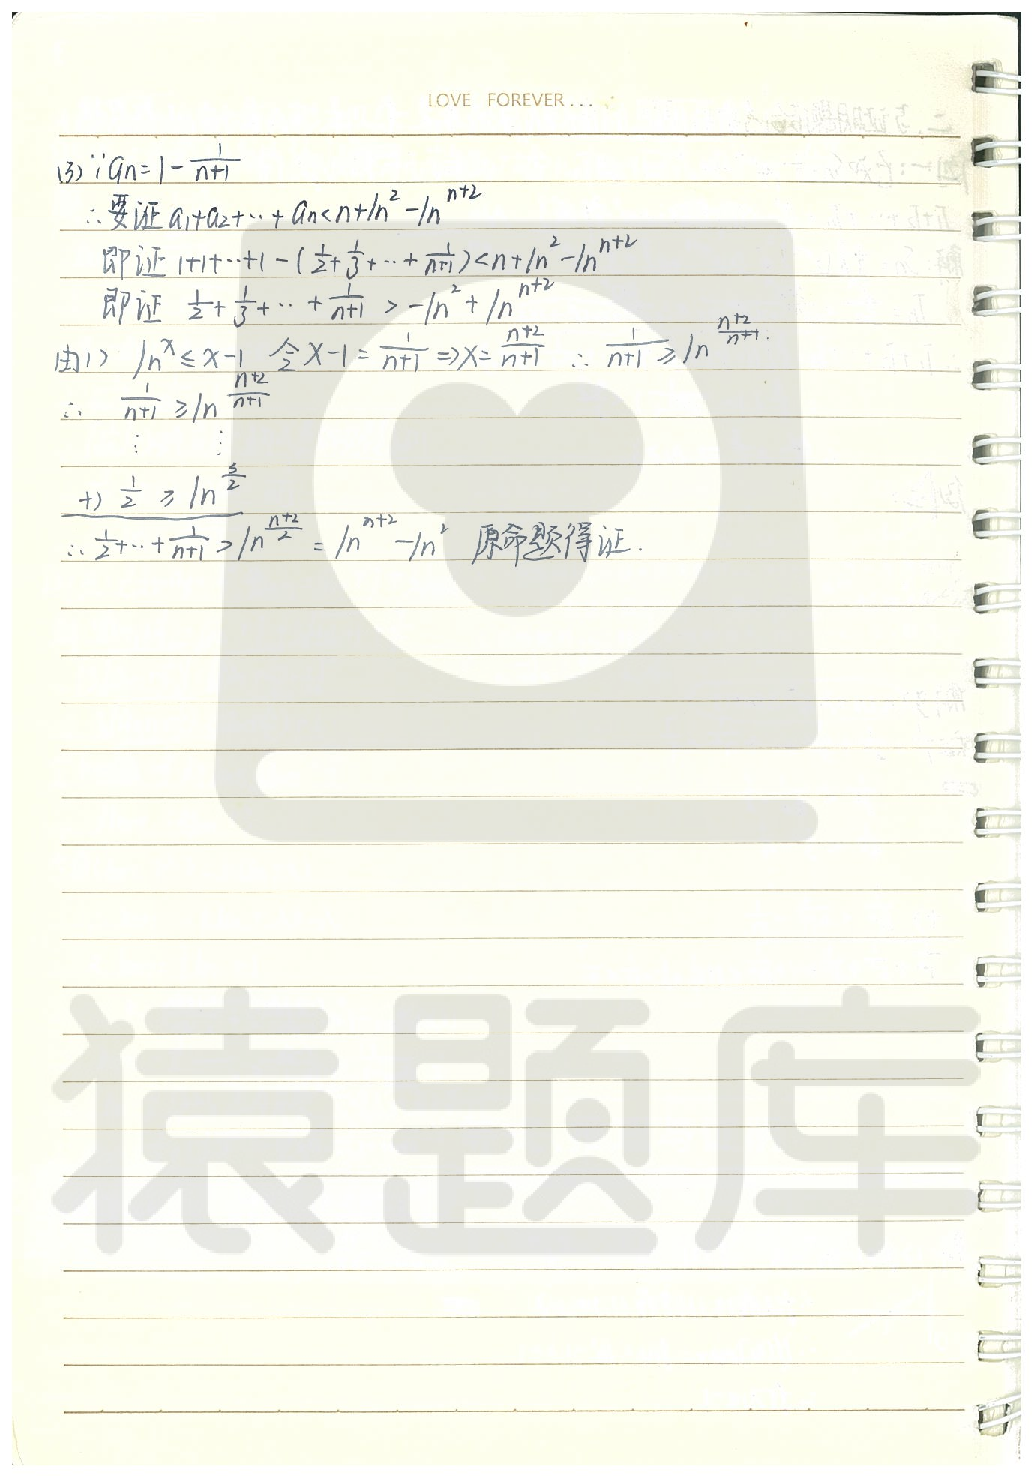 LOVE FOREVER...
(3) ∵ an = 1 - 1/(n+1)
∴ 要证 a₁+a₂+…+an < n+ln² - ln^(n+2)
即证 1+1+…+1 - (1/2+1/3+…+1/(n+1)) < n+ln² - ln^(n+2)
即证 1/2+1/3+…+1/(n+1) > -ln² + ln^(n+2)
由(1) ln^x ≤ x-1 令 x-1 = 1/(n+1) ⇒ x = (n+2)/(n+1) ∴ 1/(n+1) ≥ ln^((n+2)/(n+1)).
∴ 1/(n+1) ≥ ln^((n+2)/(n+1))
⋮ ⋮
+) 1/2 ≥ ln^(3/2)
∴ 1/2+…+1/(n+1) > ln^((n+2)/2) = ln^(n+2) - ln² 原命题得证.
猿题库